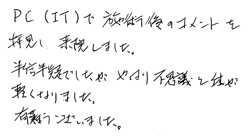 PC(IT)で施術後のコメントを
拝見し 来院しました。
半信半疑でしたが やはり不思議と体が
軽くなりました。
有難うございました。